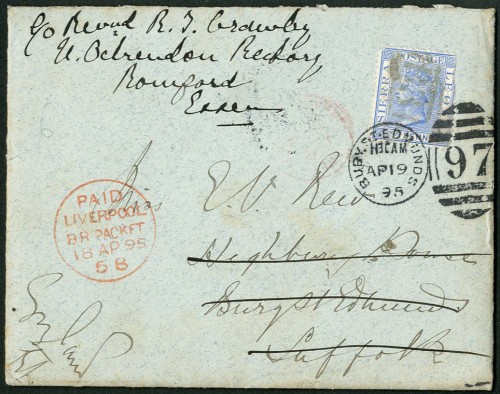 c/o Revd R. T. Crawley
N. Ockendon Rectory
Romford
Essex
SIERRA LEO
BURY ST. EDMUNDS
AP 19
95
97
PAID
LIVERPOOL
BR PACKET
18 AP 95
5 B
Miss E. V. Rew
Highbury House
Bury St Edmunds
Suffolk
England